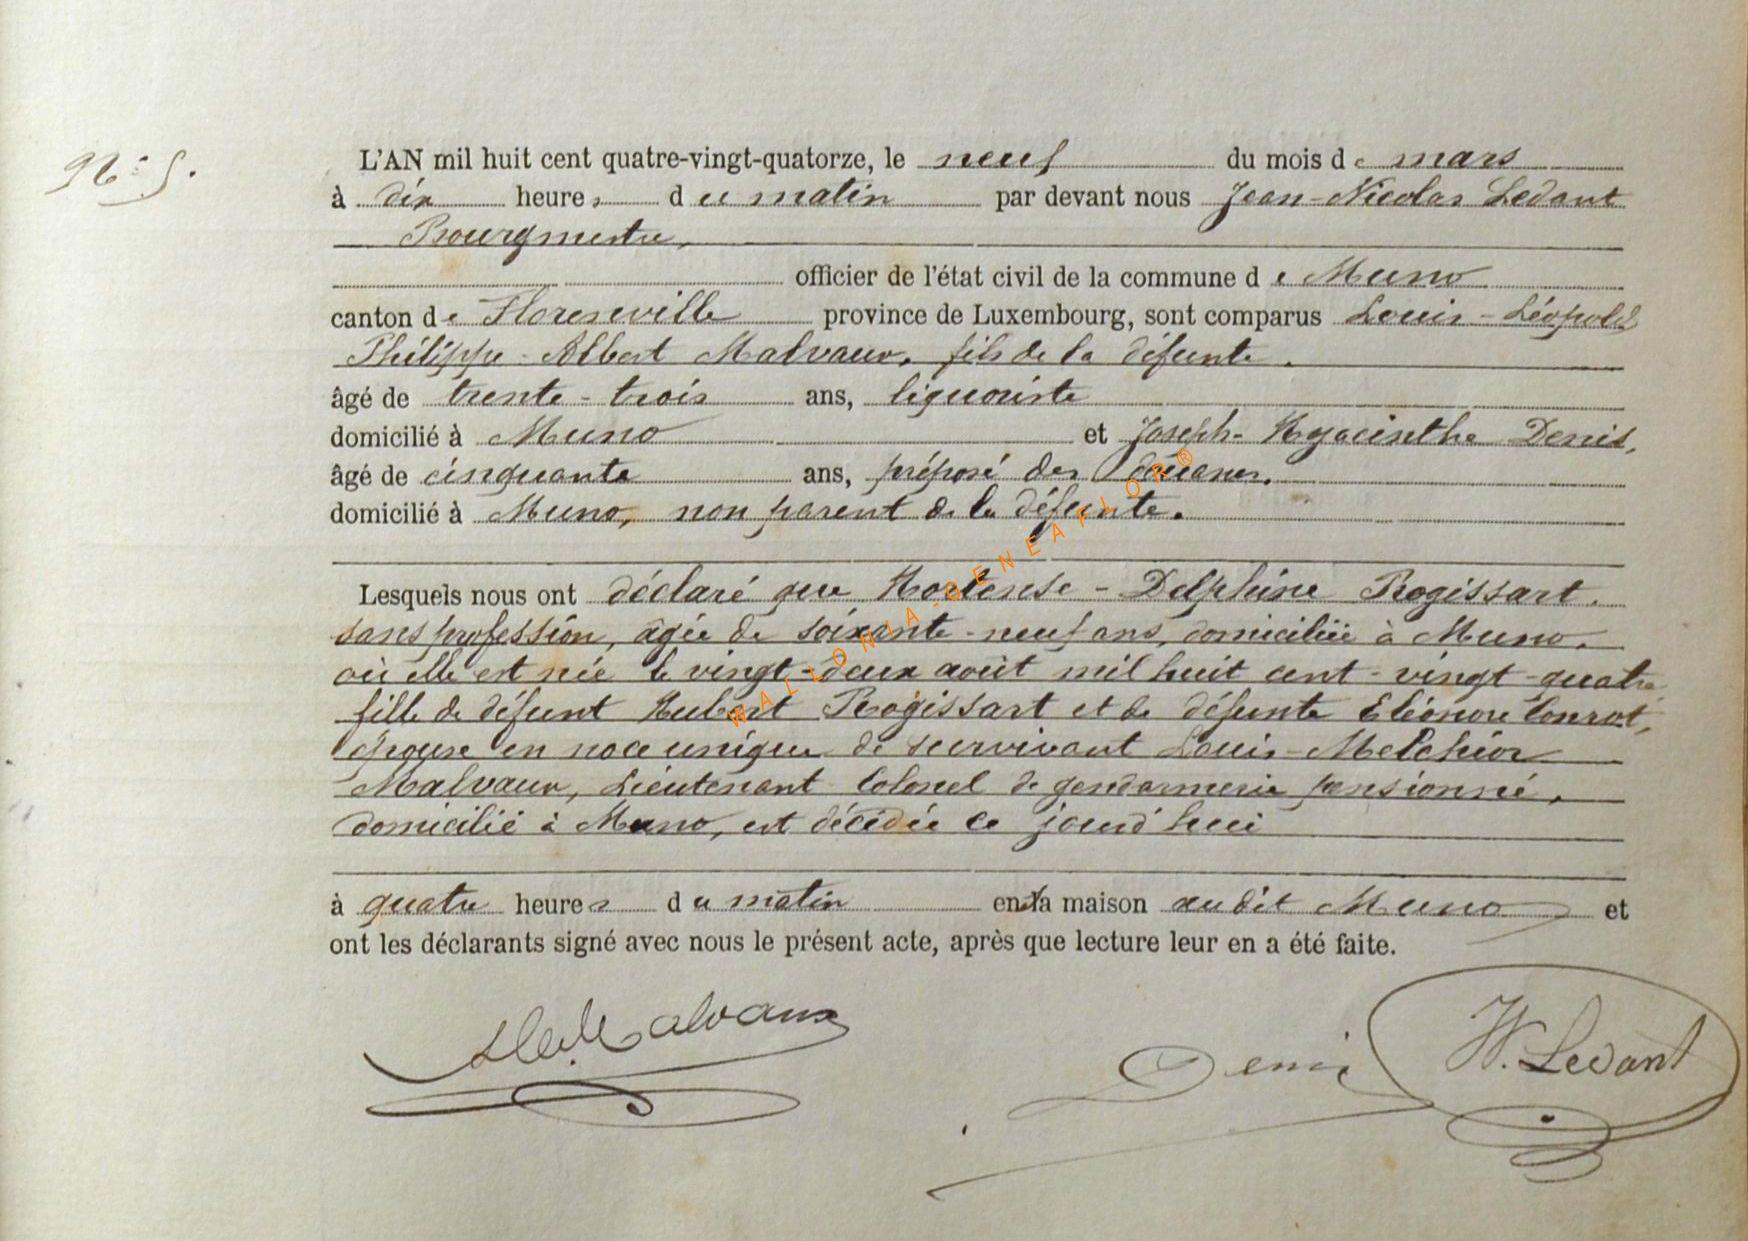 N° 5.
L'AN mil huit cent quatre-vingt-quatorze, le neuf du mois de mars
à dix heures du matin par devant nous Jean-Nicolas Ledant
Bourgmestre,
officier de l'état civil de la commune de Muno
canton de Florenville province de Luxembourg, sont comparus Louis-Léopold
Philippe-Albert Malvaux, fils de la défunte.
âgé de trente-trois ans, liquoriste
domicilié à Muno et Joseph-Hyacinthe Denis,
âgé de cinquante ans, préposé des douanes.
domicilié à Muno, non parent de la défunte.
Lesquels nous ont déclaré que Hortense-Delphine Rogissart.
sans profession, âgée de soixante-neuf ans, domiciliée à Muno.
où elle est née le vingt-deux août mil huit cent-vingt-quatre
fille de défunt Hubert Rogissart et de défunte Eléonore Conrot,
épouse en noce unique de survivant Louis-Melchior
Malvaux, Lieutenant Colonel de gendarmerie pensionné,
domicilié à Muno, est décédée ce jourd'hui
à quatre heures du matin en la maison audit Muno et
ont les déclarants signé avec nous le présent acte, après que lecture leur en a été faite.
Malvaux
Denis
Ledant
WALLONIA-GENEAFLOR®